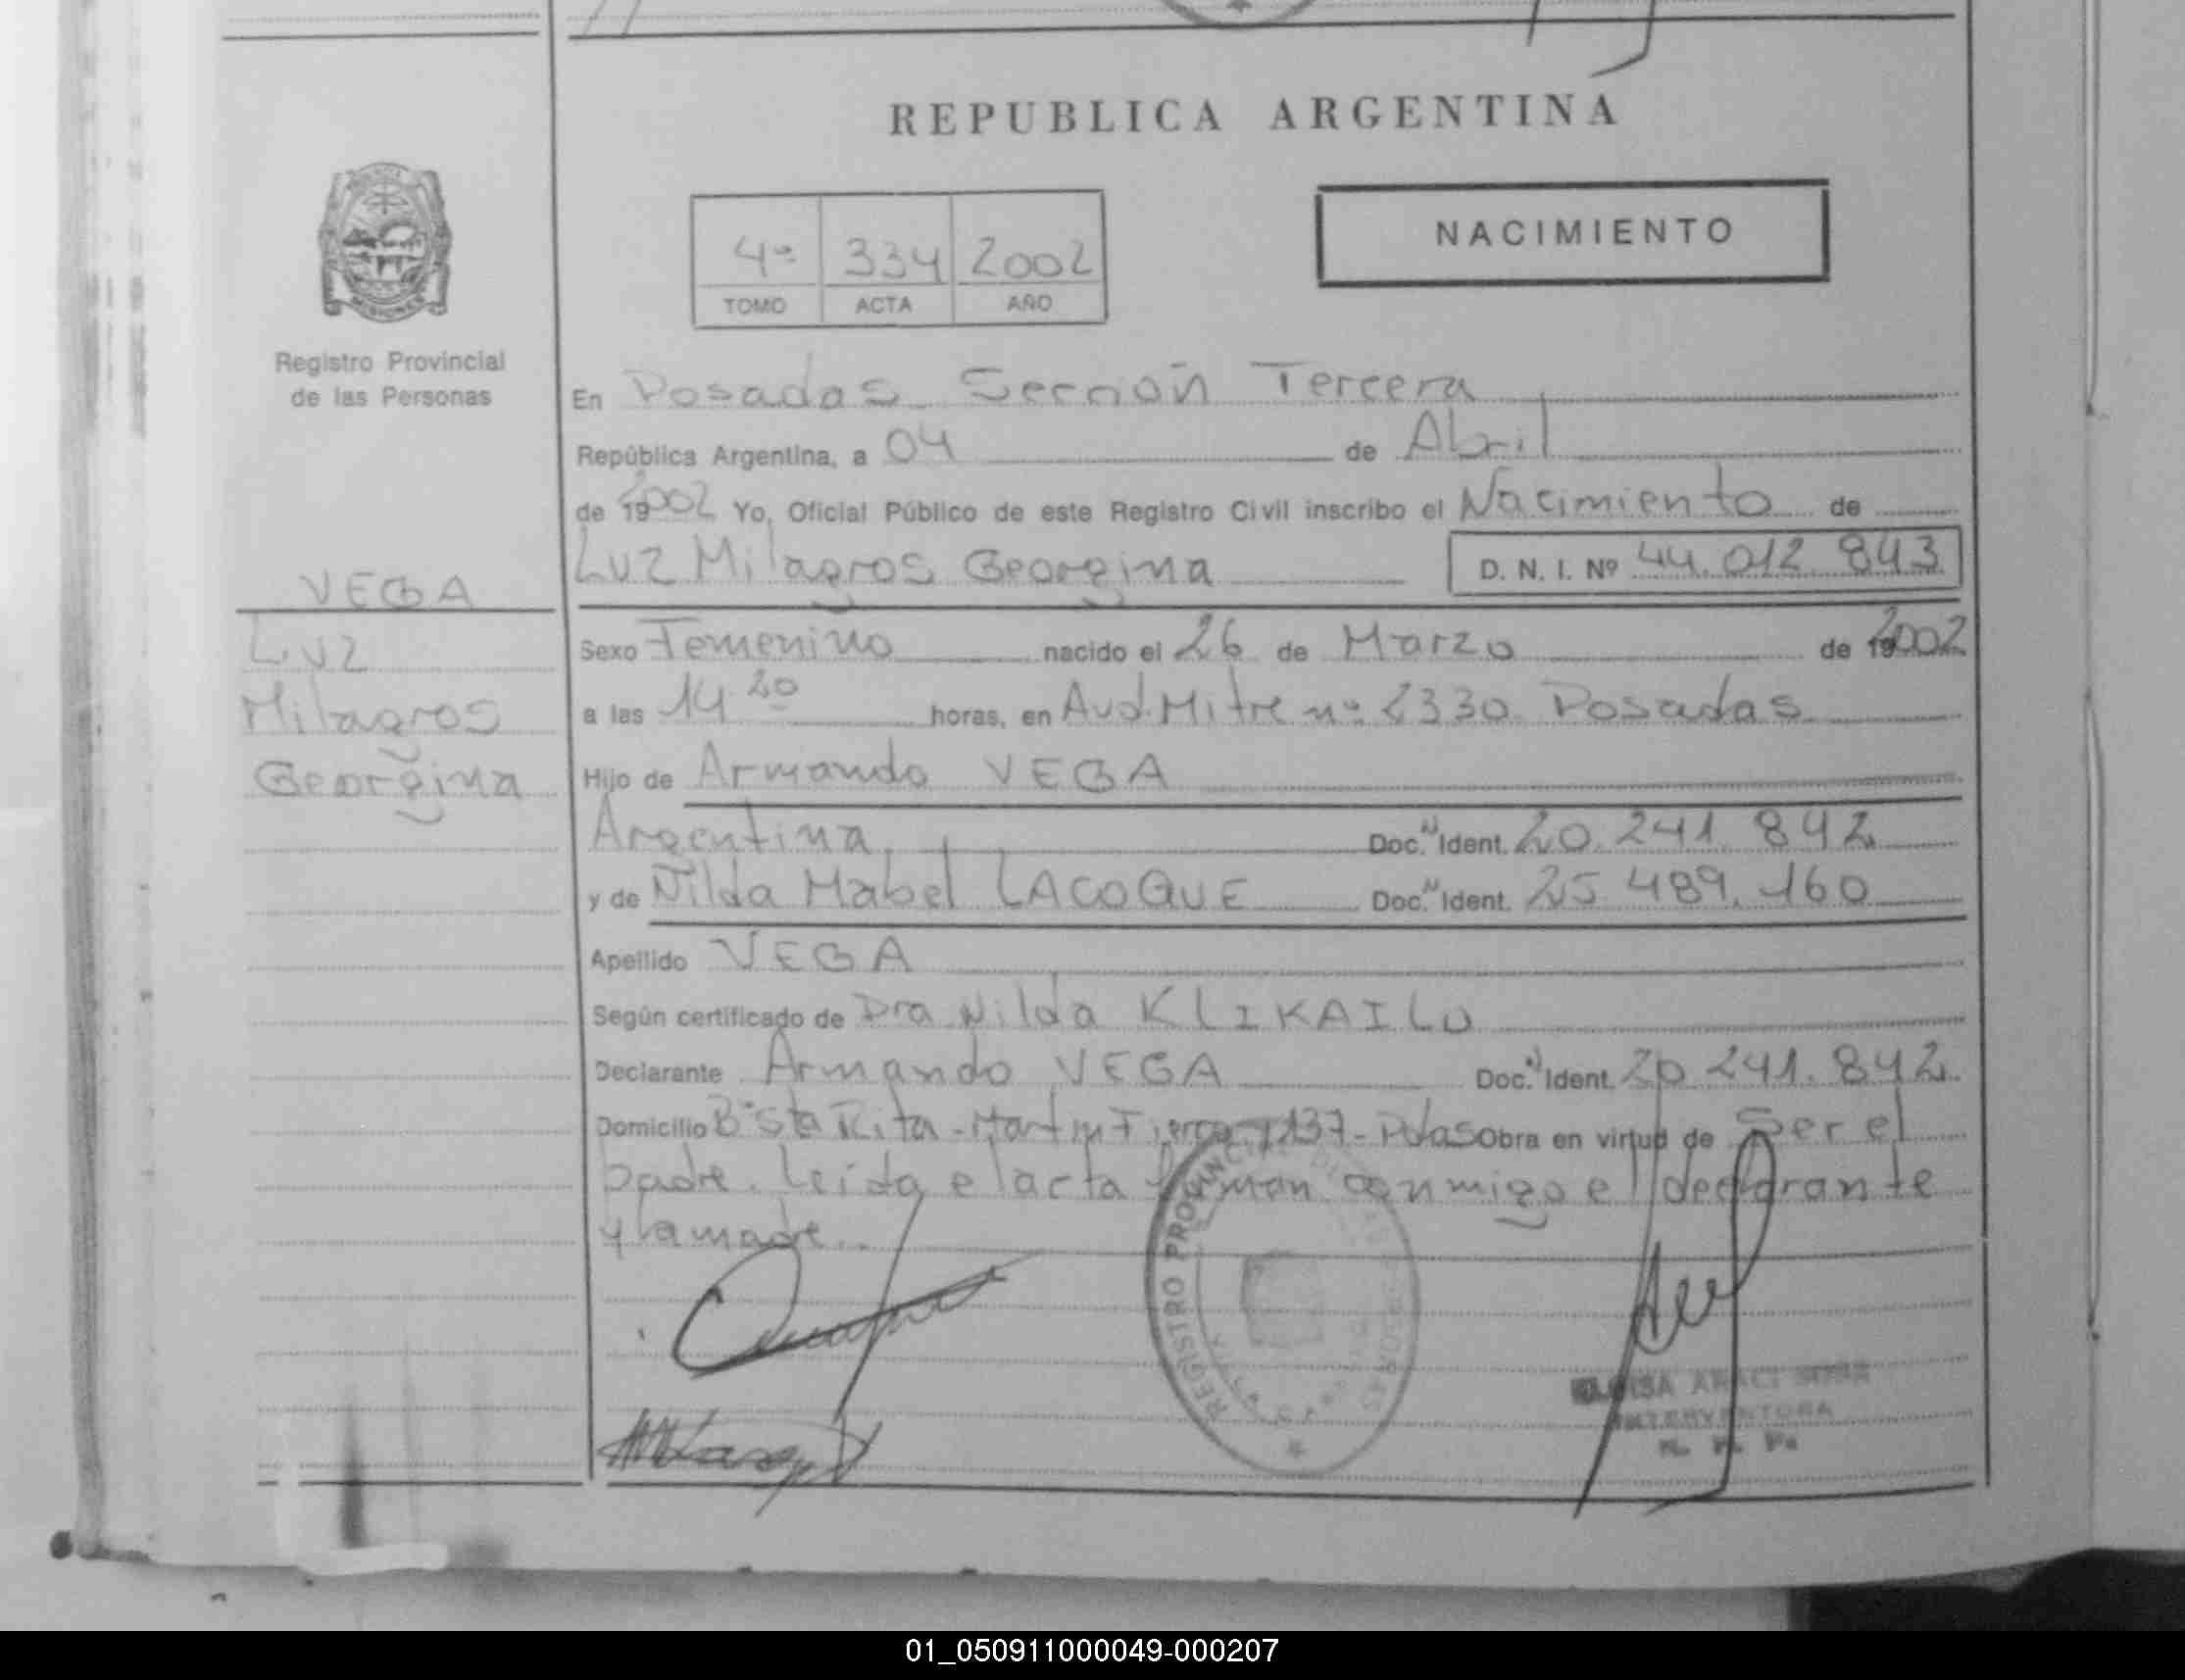 REPUBLICA ARGENTINA
NACIMIENTO
4º 334 2002
TOMO ACTA AÑO
MISIONES
Registro Provincial
de las Personas
En Posadas Sección Tercera
República Argentina, a 04 de Abril
de 2002 Yo, Oficial Público de este Registro Civil inscribo el Nacimiento de
Luz Milagros Georgina D. N. I. Nº 44.012.843
VEGA
Luz
Milagros
Georgina
Sexo Femenino nacido el 26 de Marzo de 2002
a las 14 20 horas, en Avd. Mitre nº 2330 Posadas
Hijo de Armando VEGA
Argentina Doc. N Ident. 20.241.842
y de Nilda Mabel LACOQUE Doc. N Ident. 25.489.160
Apellido VEGA
Según certificado de Dra Nilda KLIKAILO
Declarante Armando VEGA Doc. Ident. 20.241.842
Domicilio Bº Sta Rita - Martin Fierro 7137 - Pdas Obra en virtud de Ser el
padre. Leida el acta firman conmigo el declarante
y la madre.
REGISTRO PROVINCIAL DE LAS PERSONAS
ARACI SOSA
INTERVENTORA
R. P. P.
01_050911000049-000207